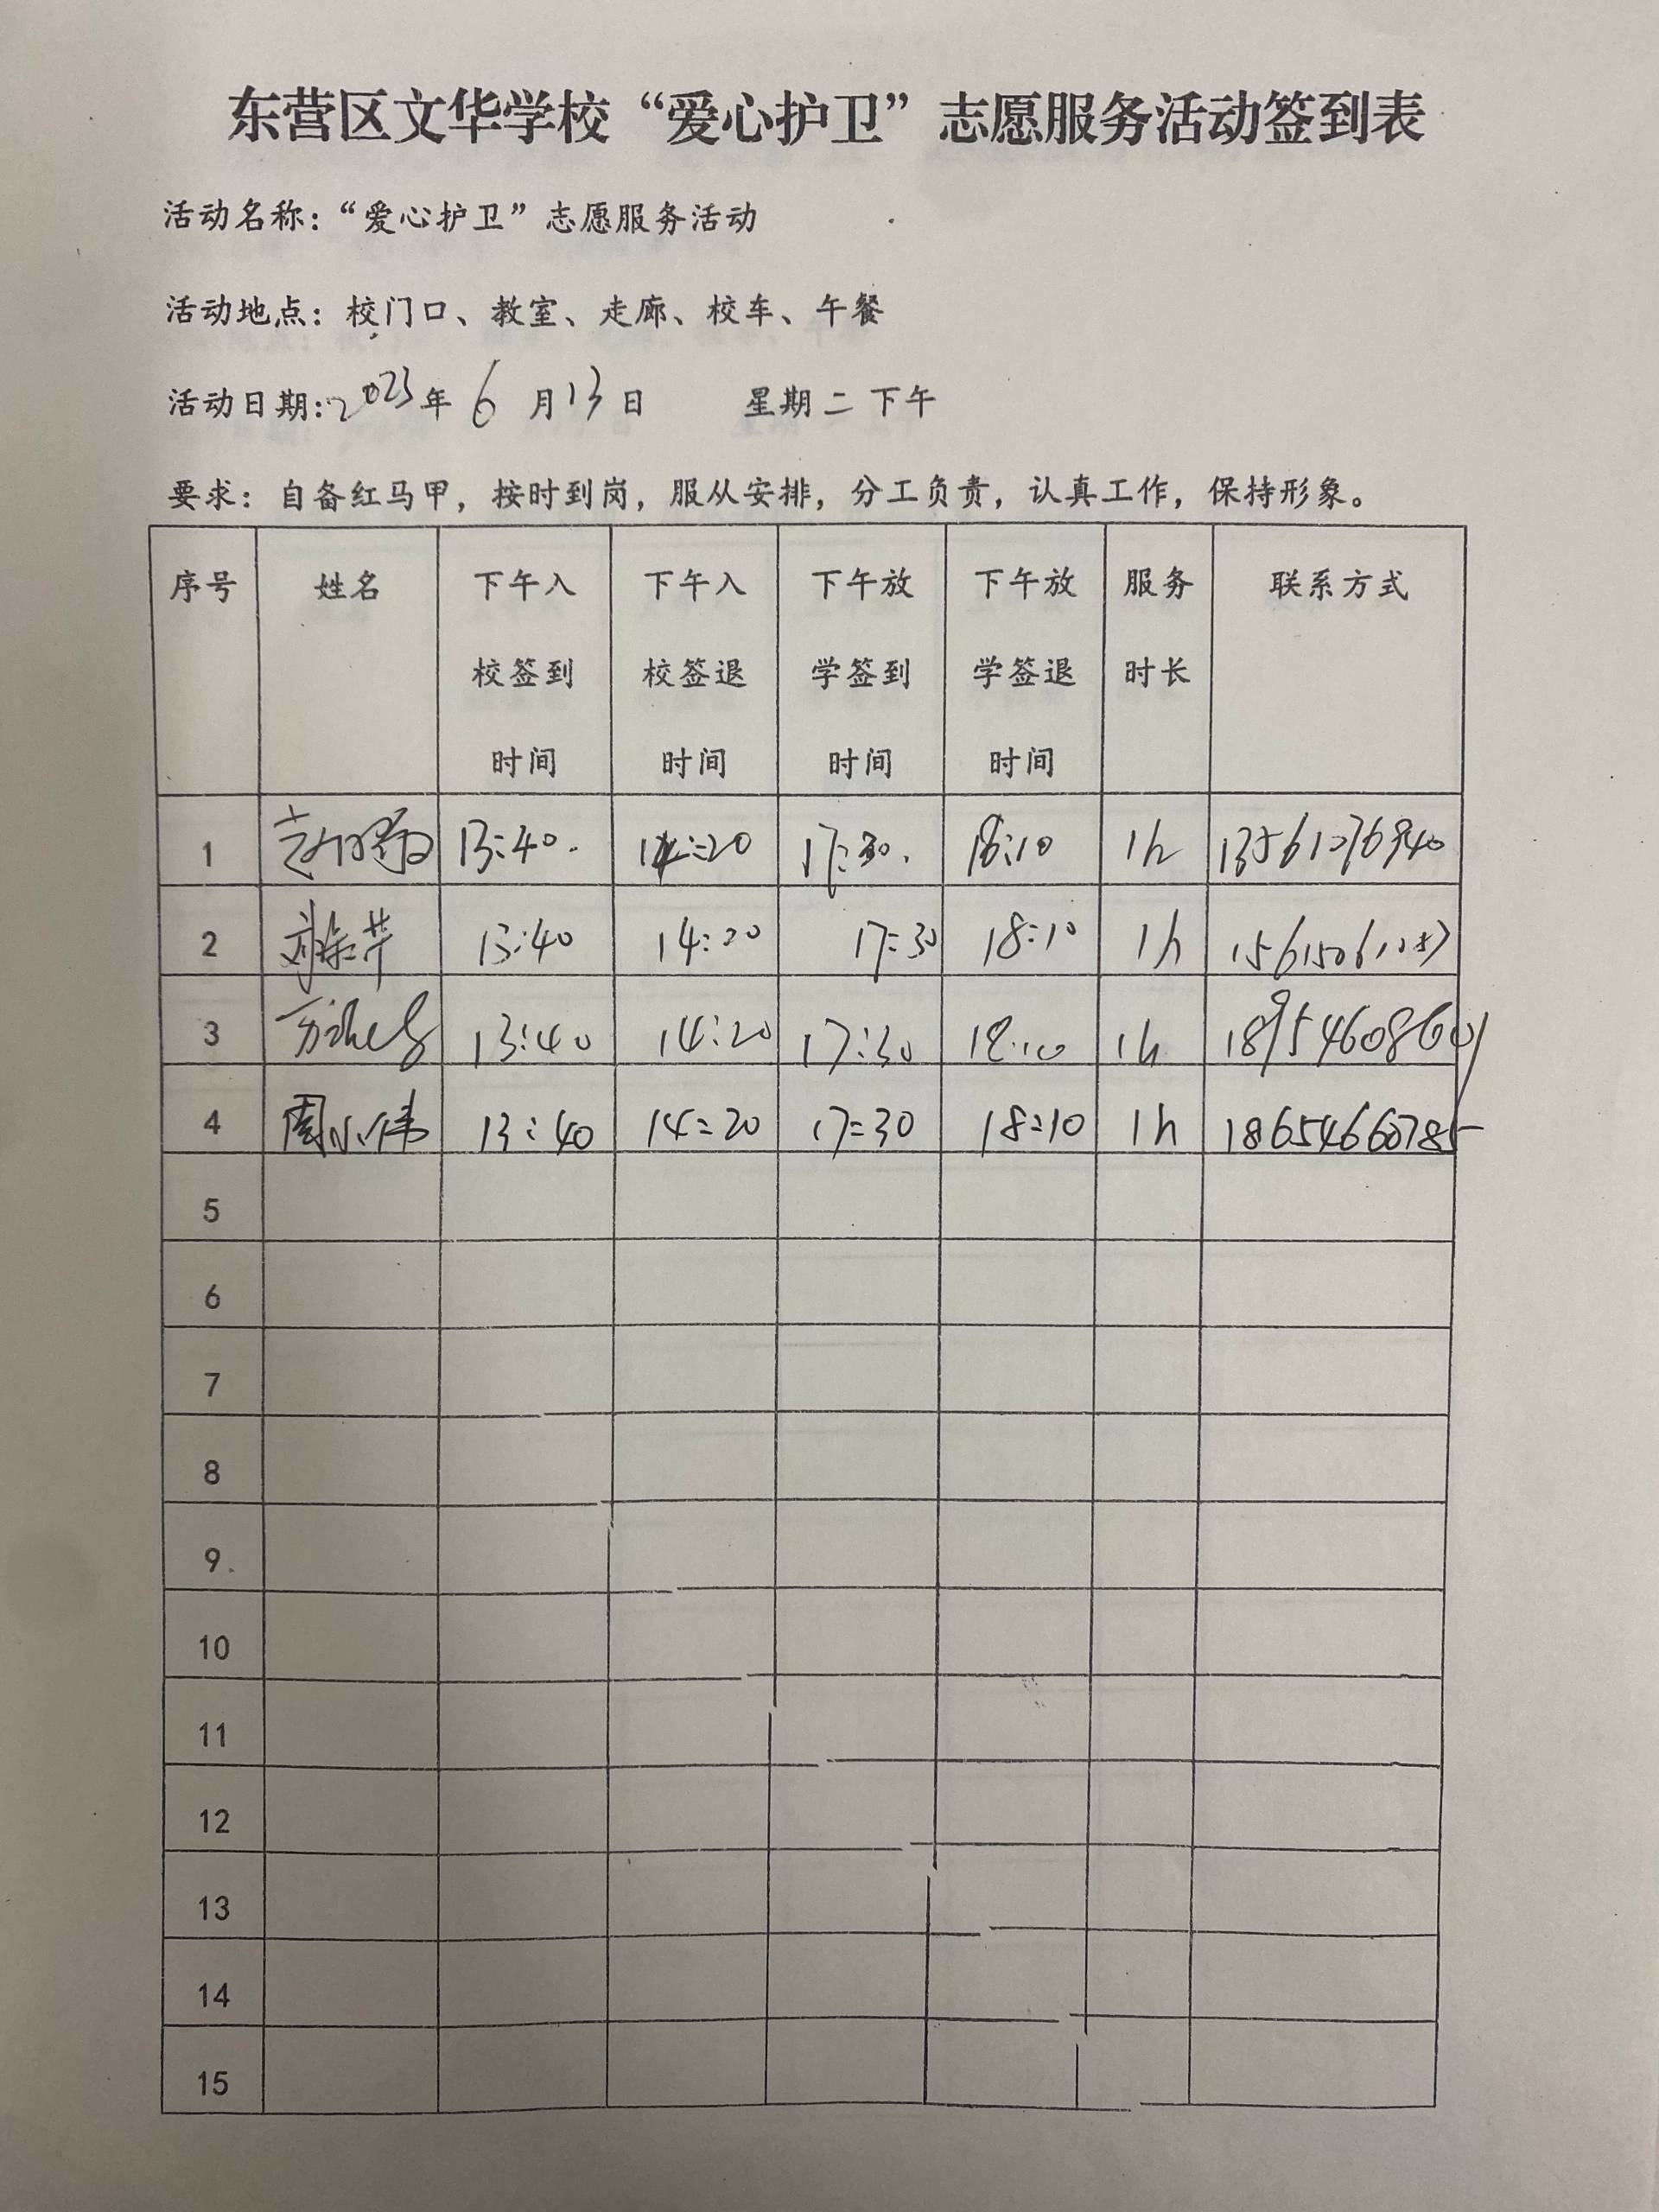 东营区文华学校“爱心护卫”志愿服务活动签到表
活动名称：“爱心护卫”志愿服务活动
活动地点：校门口、教室、走廊、校车、午餐
活动日期：2023年 6 月 13 日 星期二 下午
要求：自备红马甲，按时到岗，服从安排，分工负责，认真工作，保持形象。
序号 姓名 下午入校签到时间 下午入校签退时间 下午放学签到时间 下午放学签退时间 服务时长 联系方式
1 13:40. 14:20 17:30. 18:10 1h
2 13:40 14:20 17:30 18:10 1h
3 13:40 14:20 17:30 18:10 1h 18954608601
4 周小伟 13:40 14:20 17:30 18:10 1h 18654660785
5
6
7
8
9
10
11
12
13
14
15